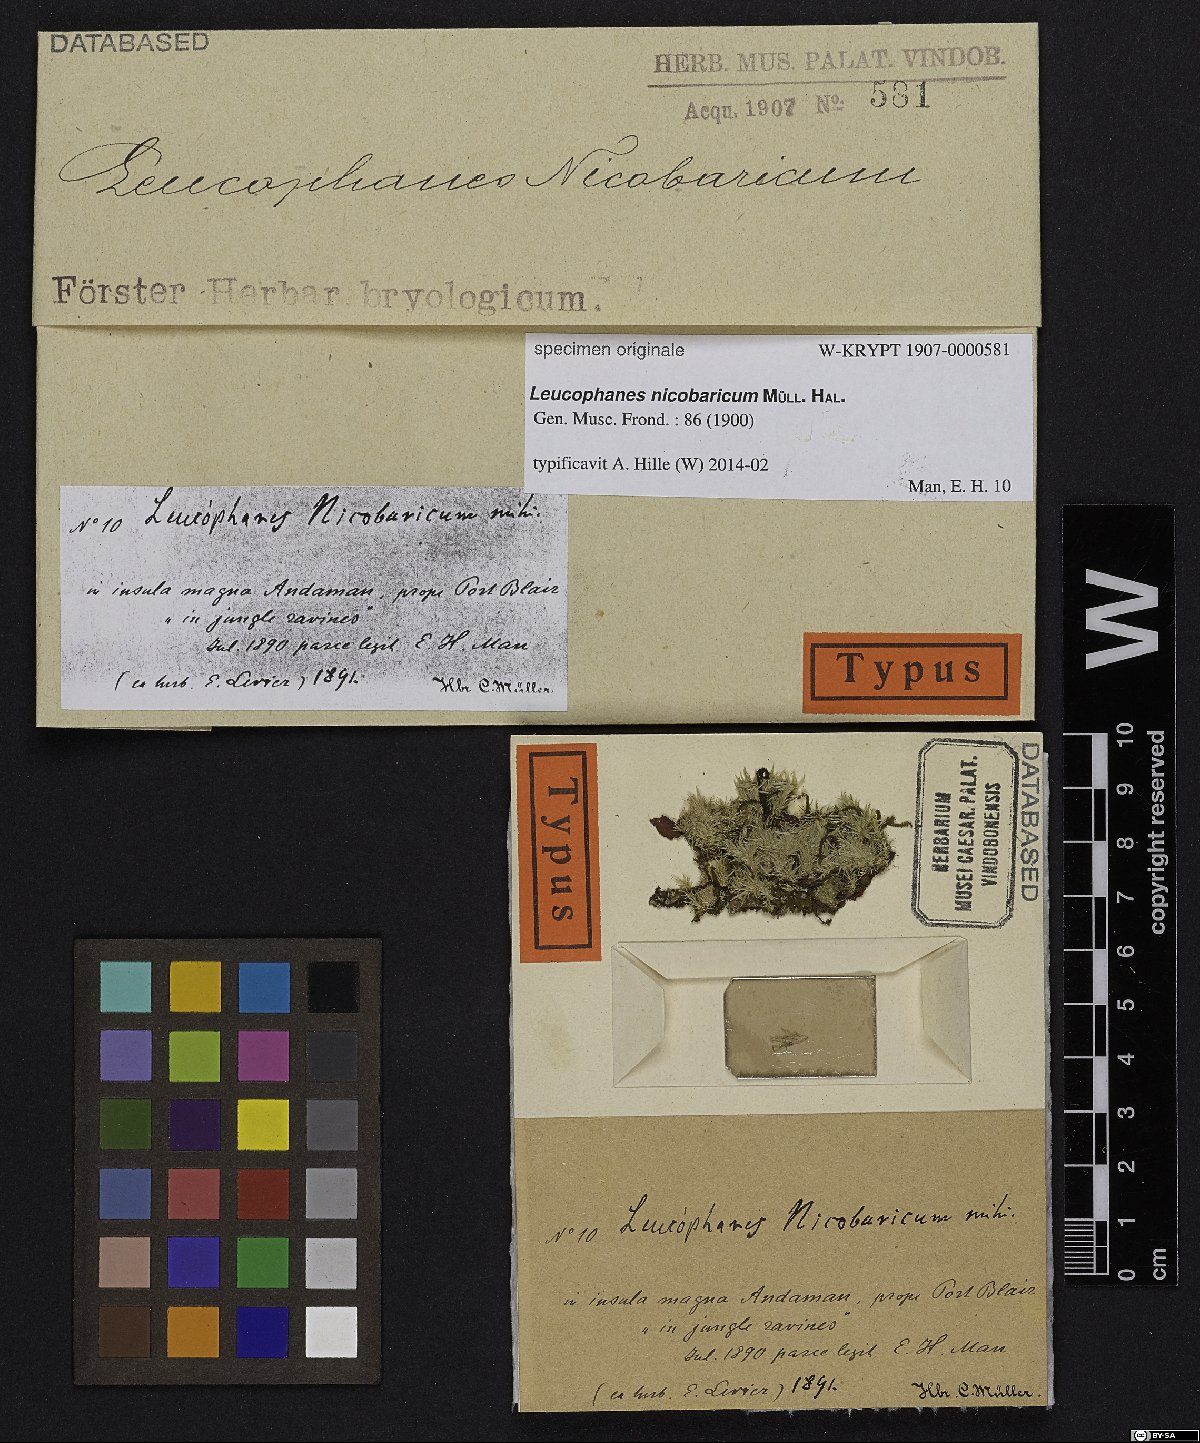 DATABASED
HERB. MUS. PALAT. VINDOB.
Acqu. 1907 No. 581
Leucophanes Nicobaricum
Förster Herbar. bryologicum.
specimen originale W-KRYPT 1907-0000581
Leucophanes nicobaricum MÜLL. HAL.
Gen. Musc. Frond. : 86 (1900)
typificavit A. Hille (W) 2014-02
Man, E. H. 10
No 10 Leucóphanes Nicobaricum mihi.
in insula magna Andaman, prope Port Blair
"in jungle ravines"
Jul. 1890 parce legit E. H. Man
(ex herb. E. Levier) 1891.
Hbr. C. Müller.
Typus
Typus
HERBARIUM
MUSEI CAESAR. PALAT.
VINDOBONENSIS
DATABASED
No 10 Leucóphanes Nicobaricum mihi.
in insula magna Andaman, prope Port Blair
"in jungle ravines"
Jul. 1890 parce legit E. H. Man
(ex herb. E. Levier) 1891.
Hbr. C. Müller.
W
10
9
8
7
6
5
4
3
2
1
0
cm
copyright reserved
cc BY-SA